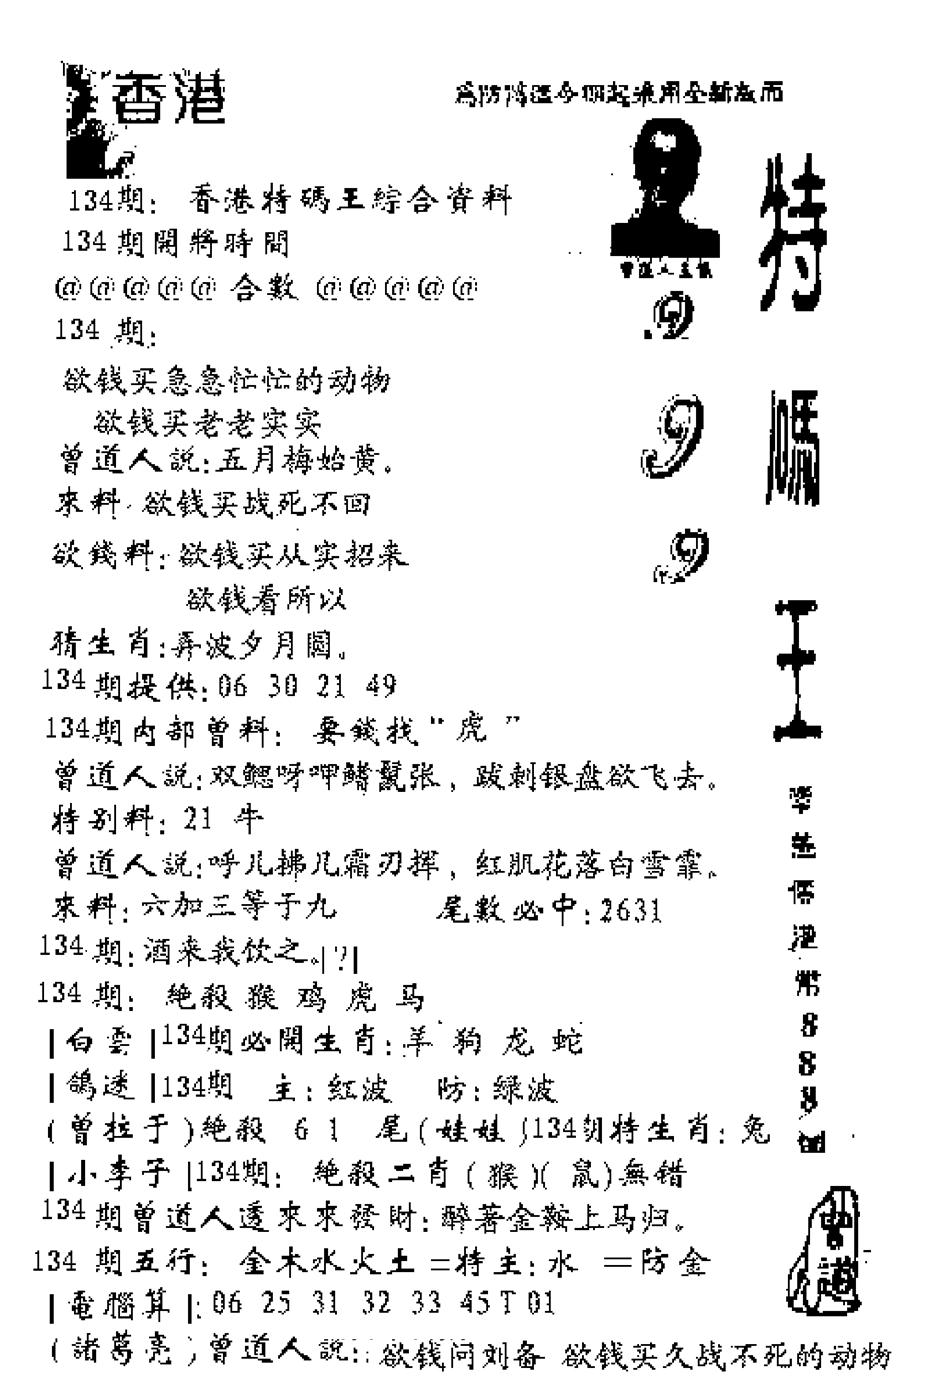 香港
為防搞混今期起采用全新版面
134期：香港特碼王綜合資料
134期開將時間
@@@@@合數@@@@@
134 期：
欲钱买急急忙忙的动物
欲钱买老老实实
曾道人説：五月梅始黄。
來料：欲钱买战死不回
欲錢料：欲钱买从实招来
欲钱看所以
猜生肖：弄波夕月圆。
134期提供：06 30 21 49
134期内部曾料：要錢找“虎”
曾道人説：双鳃呀呷鳍鬣张，跋剌银盘欲飞去。
特别料：21 牛
曾道人説：呼儿拂几霜刃挥，红肌花落白雪霏。
來料：六加三等于九 尾數必中：2631
134期：酒来我饮之。|?|
134期：絶殺 猴 鸡 虎 马
|白雲|134期必開生肖：羊 狗 龙 蛇
|鴿迷|134期 主：红波 防：绿波
(曾拉于)絶殺 6 1 尾(娃娃)134期特生肖：兔
|小李子|134期：絶殺二肖(猴)(鼠)無错
134期曾道人透來來發財：醉著金鞍上马归。
134 期五行：金木水火土=特主：水 =防金
|電腦算|：06 25 31 32 33 45T01
(諸葛亮)曾道人説：：欲钱问刘备 欲钱买久战不死的动物
曾道人主
9
9
9
特
碼
王
港
幣
8
8
8
曾道